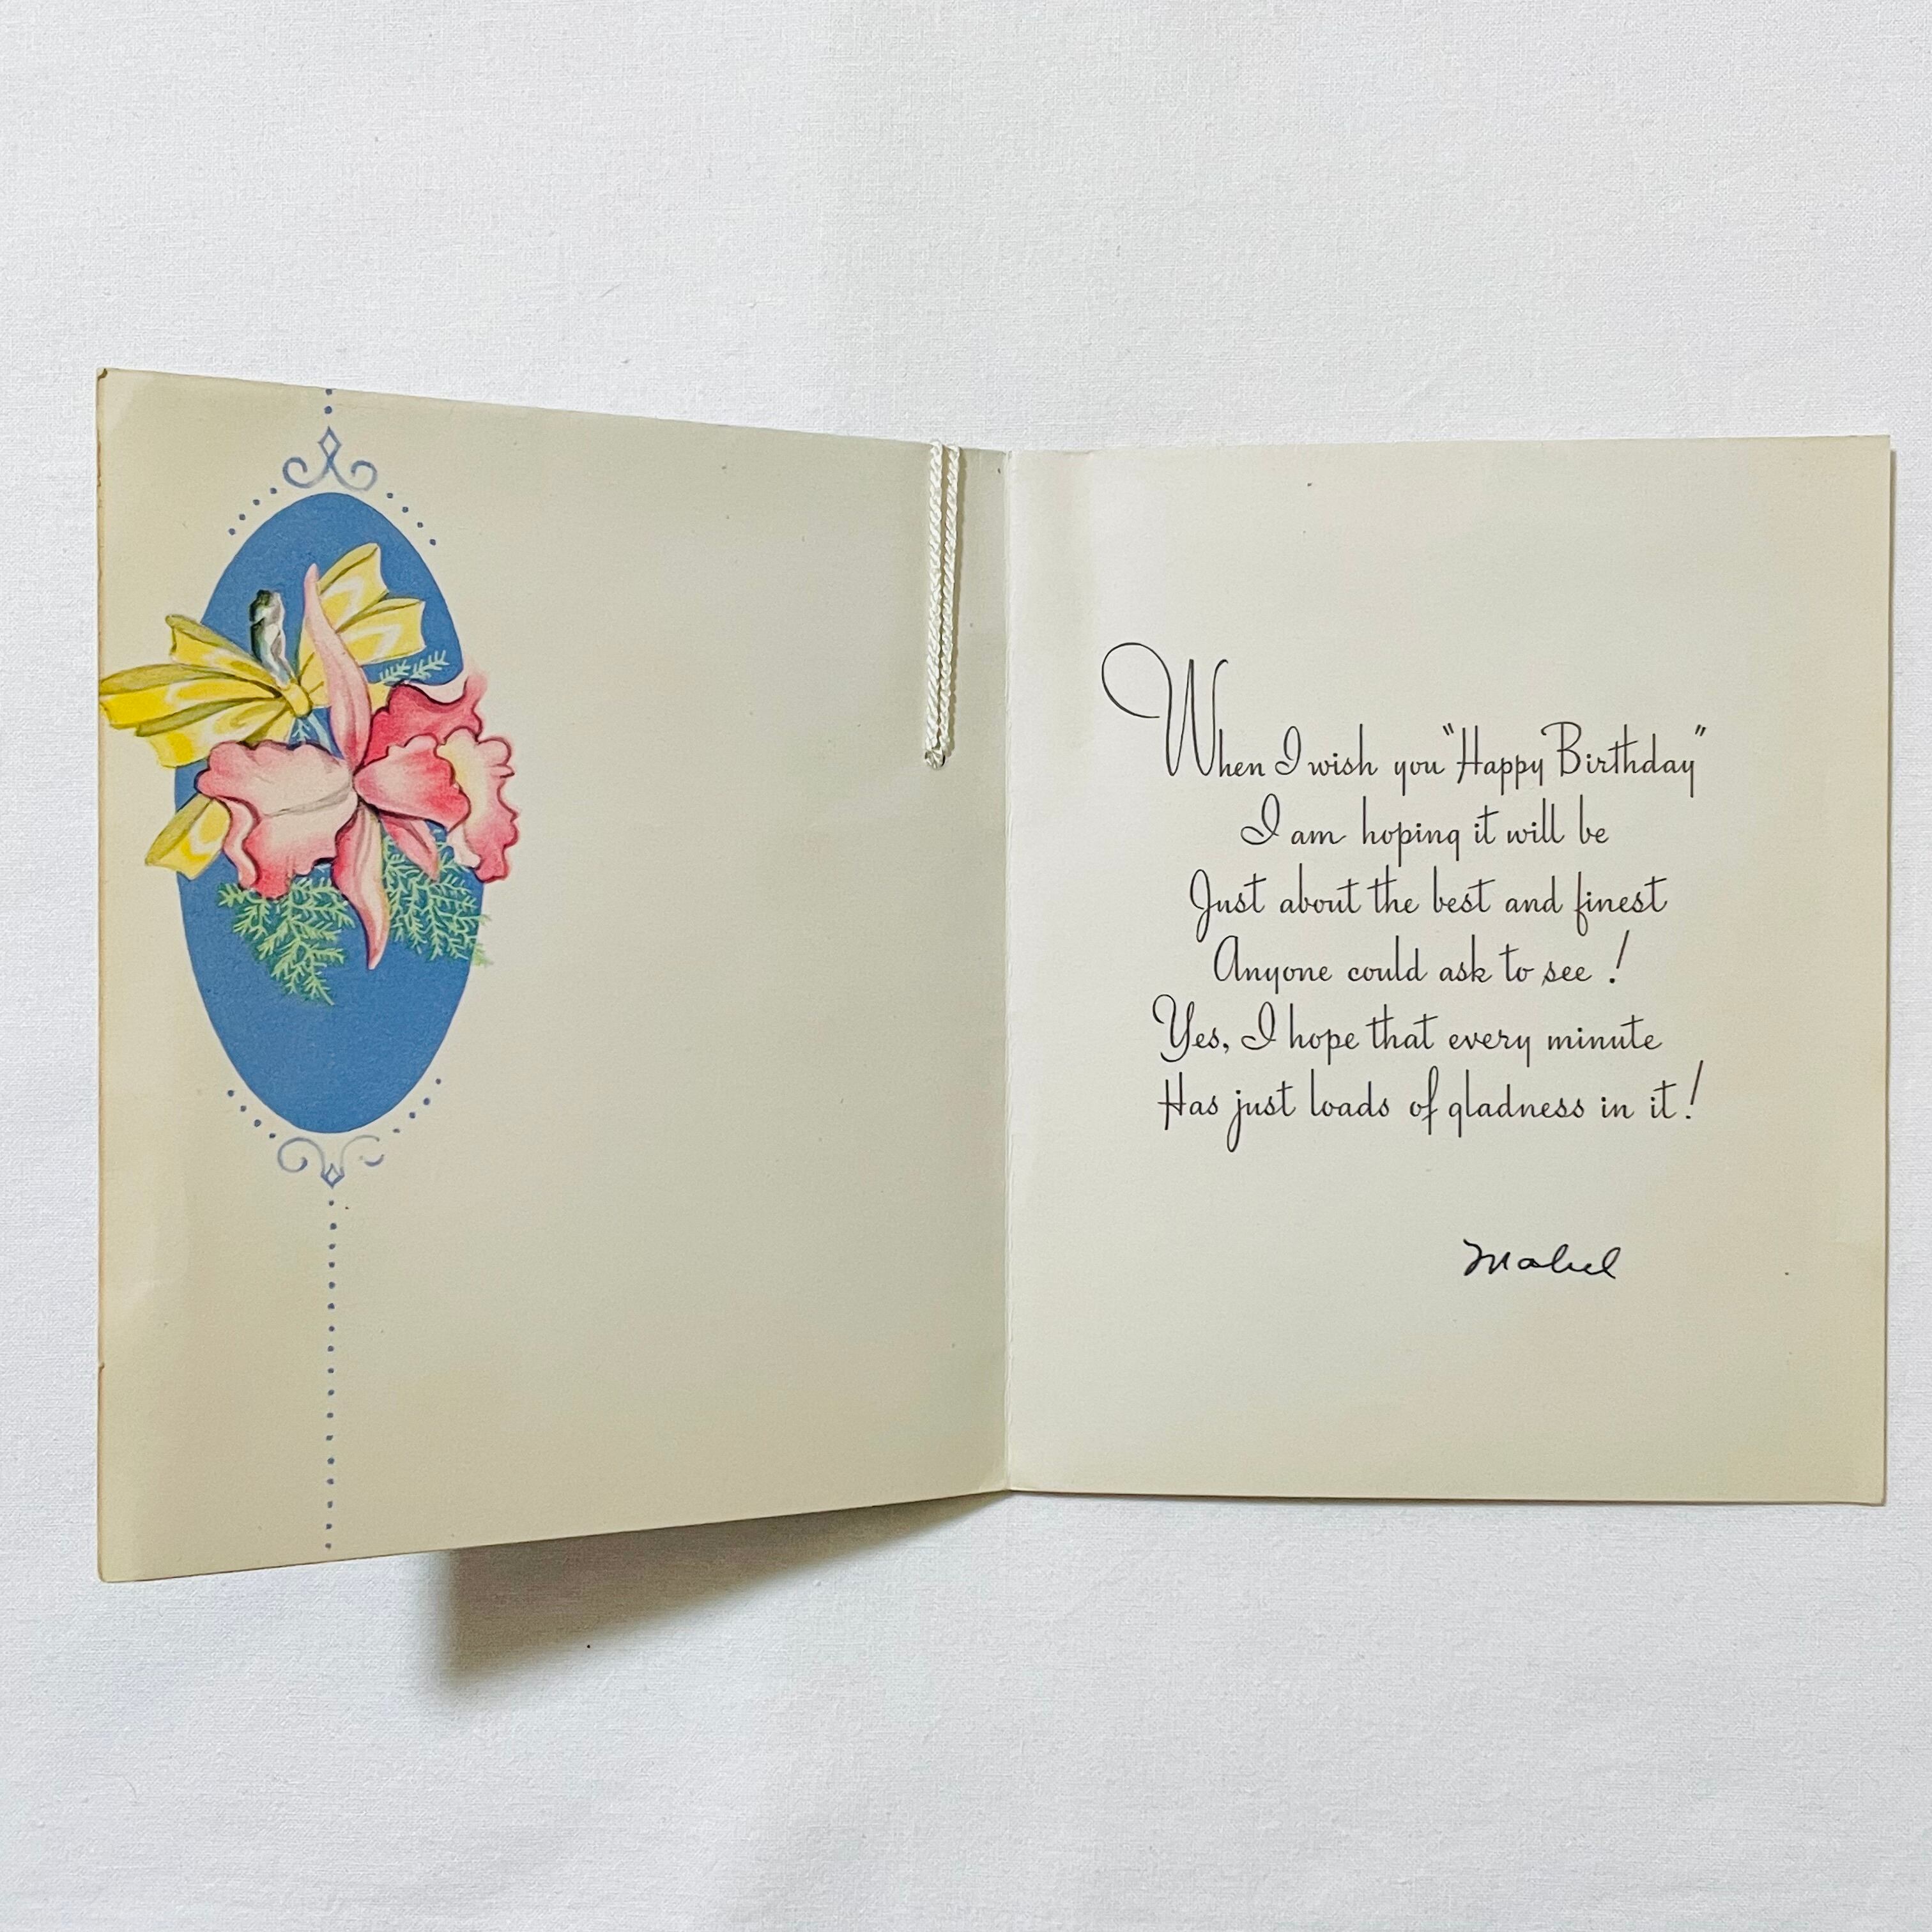 When I wish you "Happy Birthday"
I am hoping it will be
Just about the best and finest
Anyone could ask to see!
Yes, I hope that every minute
Has just loads of gladness in it!
Mabel